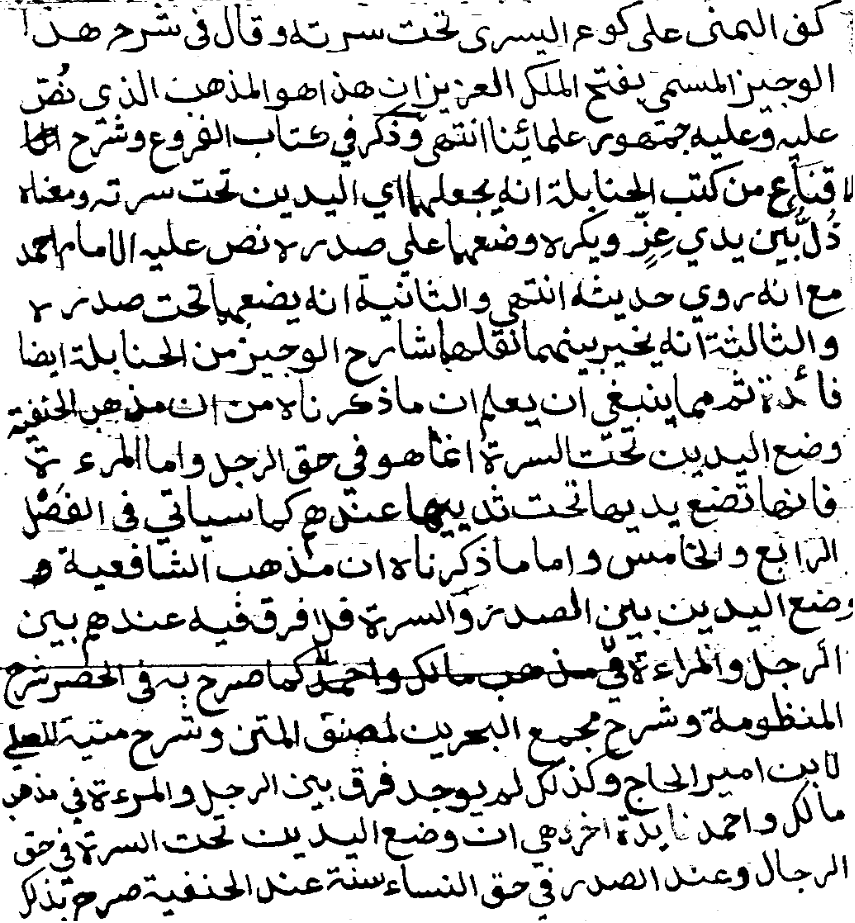 كف اليمنى على كوع اليسرى تحت سرته وقال في شرح هذا
الوجيز المسمى بفتح الملك العزيز ان هذا هو المذهب الذي نُصّ
عليه وعليه جمهور علمائنا انتهى وذكر في كتاب الفروع وشرح
لاقناع من كتب الحنابلة انه يجعلهما اي اليدين تحت سرته ومعناه
ذُلّ بين يدي عِزٍّ ويكره وضعهما على صدره نص عليه الامام احمد
مع انه روي حديثه انتهى والثانية انه يضعهما تحت صدره
والثالثة انه يخير بينهما نقلها شارح الوجيز من الحنابلة ايضا
فائدة ثم مما ينبغي ان يعلم ان ما ذكرناه من ان مذهب الحنفية
وضع اليدين تحت السرة انما هو في حق الرجل واما المرءة
فانها تضع يديها تحت ثدييها عندهم كما سياتي في الفصل
الرابع والخامس واما ما ذكرناه ان مذهب الشافعية هو
وضع اليدين بين الصدر والسرة فلا فرق فيه عندهم بين
الرجل والمراءة في مذهب مالك واحمد كما صرح به في الحصر شرح
المنظومة وشرح مجمع البحرين لمصنف المتن وشرح منية المصلي
لابن امير الحاج وكذلك لم يوجد فرق بين الرجل والمرءة في مذهب
مالك واحمد فايدة اخرى هي ان وضع اليدين تحت السرة في حق
الرجال وعند الصدر في حق النساء سنة عند الحنفية صرح بذلك